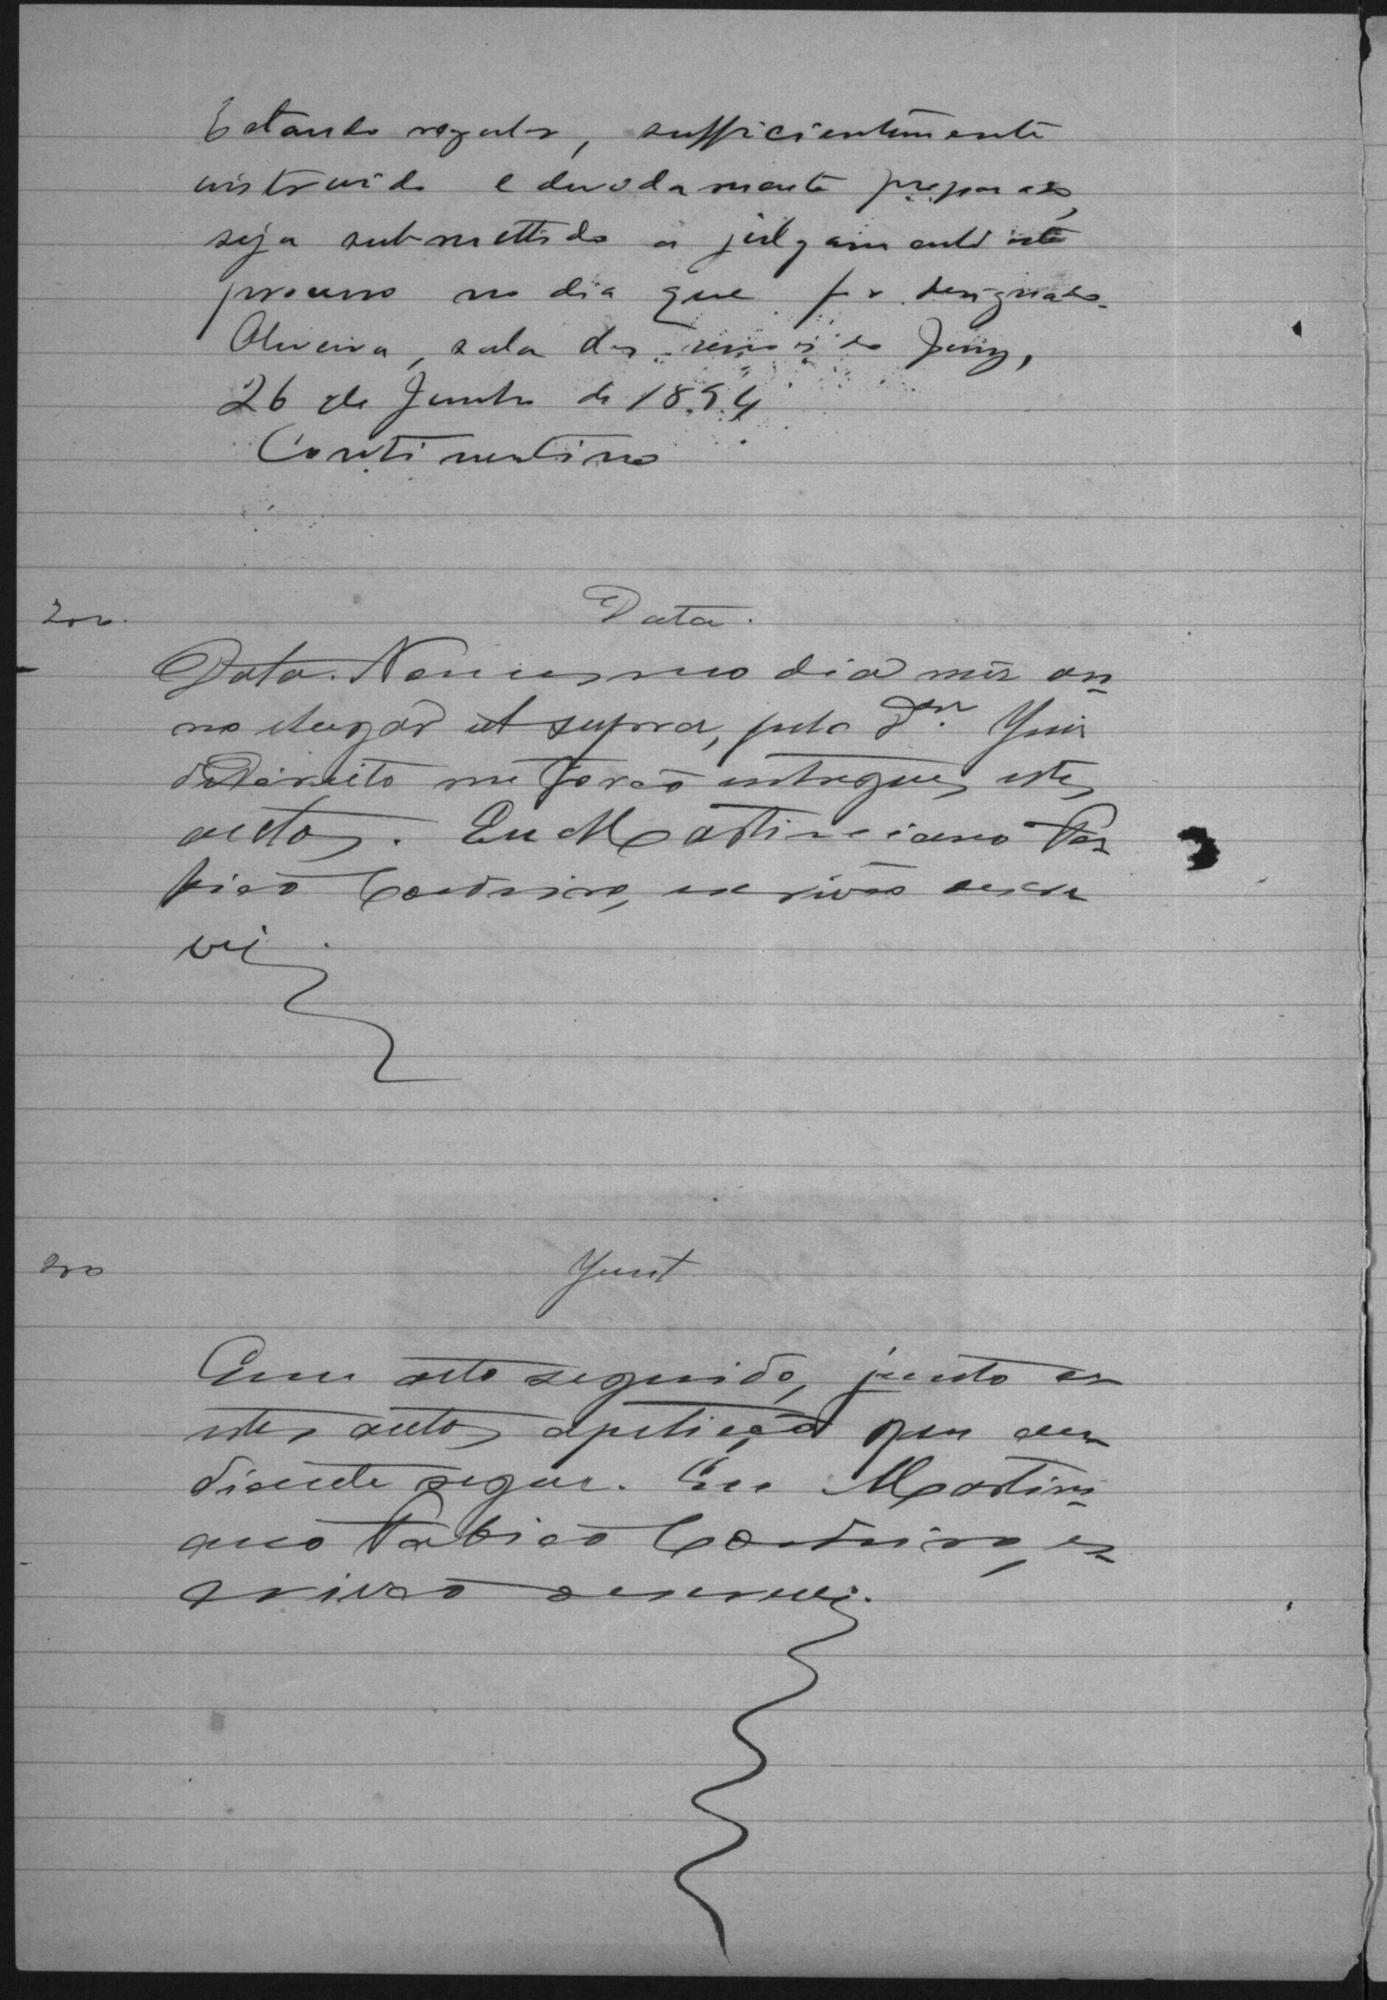 Estando regular, sufficientemente
instruido e devidamente preparado,
seja submettido a julgamento este
processo no dia que for designado.
Oliveira, sala das sessões do Jury,
26 de Junho de 1894
Continentino
200. Data.
Data. No mesmo dia mez an-
no e lugar ut supra, pelo Dr. Juiz
de Direito me forão entregues estes
autos. Eu Martiniano
Cordeiro, escrivão o escre
vi.
200 Junt.
Em acto seguido, junto a
estes autos a petição que a
diante segue. Eu Martini-
ano Cordeiro, es-
crivão o escrevi.